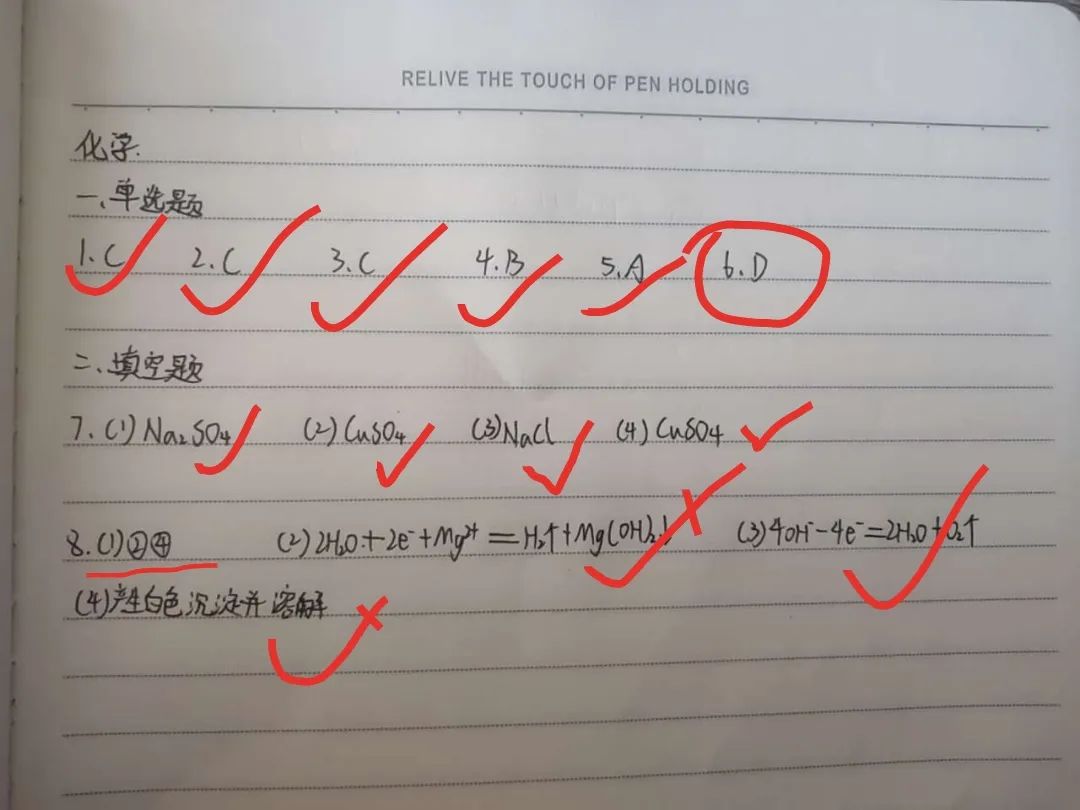 RELIVE THE TOUCH OF PEN HOLDING
化学.
一、单选题
1.C 2.C 3.C 4.B 5.A 6.D
二、填空题
7.(1)Na₂SO₄ (2)CuSO₄ (3)NaCl (4)CuSO₄
8.(1)②④ (2)2H₂O+2e⁻+Mg²⁺=H₂↑+Mg(OH)₂↓ (3)4OH⁻-4e⁻=2H₂O+O₂↑
(4)产生白色沉淀并溶解